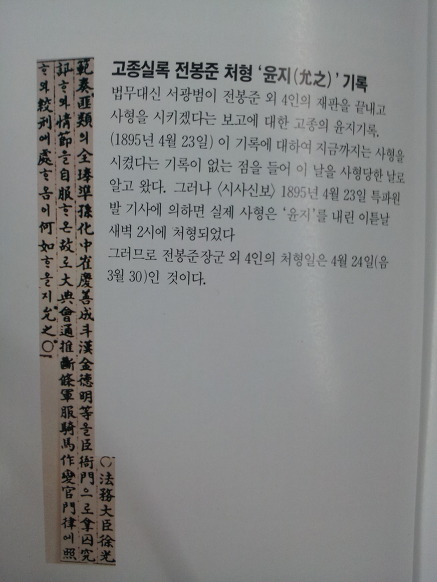 고종실록 전봉준 처형 '윤지(允之)' 기록
법무대신 서광범이 전봉준 외 4인의 재판을 끝내고
사형을 시키겠다는 보고에 대한 고종의 윤지기록.
(1895년 4월 23일) 이 기록에 대하여 지금까지는 사형을
시켰다는 기록이 없는 점을 들어 이 날을 사형당한 날로
알고 왔다. 그러나 〈시사신보〉 1895년 4월 23일 특파원
발 기사에 의하면 실제 사형은 '윤지'를 내린 이튿날
새벽 2시에 처형되었다
그러므로 전봉준장군 외 4인의 처형일은 4월 24일(음
3월 30)인 것이다.
○法務大臣徐光
範奏匪類의全琫準孫化中崔慶善成斗漢金德明等을臣衙門으로拿囚究
訊ᄒᆞ와情節을自服ᄒᆞ온故로大典會通推斷條軍服騎馬作變官門律에照
ᄒᆞ와絞刑에處ᄒᆞ옴이何如ᄒᆞ올지允之○